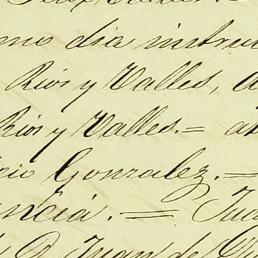 mo dia instru
Rios y Valles, a
Rios y Valles.= a
cio Gonzalez.=
ncia.= Jua
D. Juan de